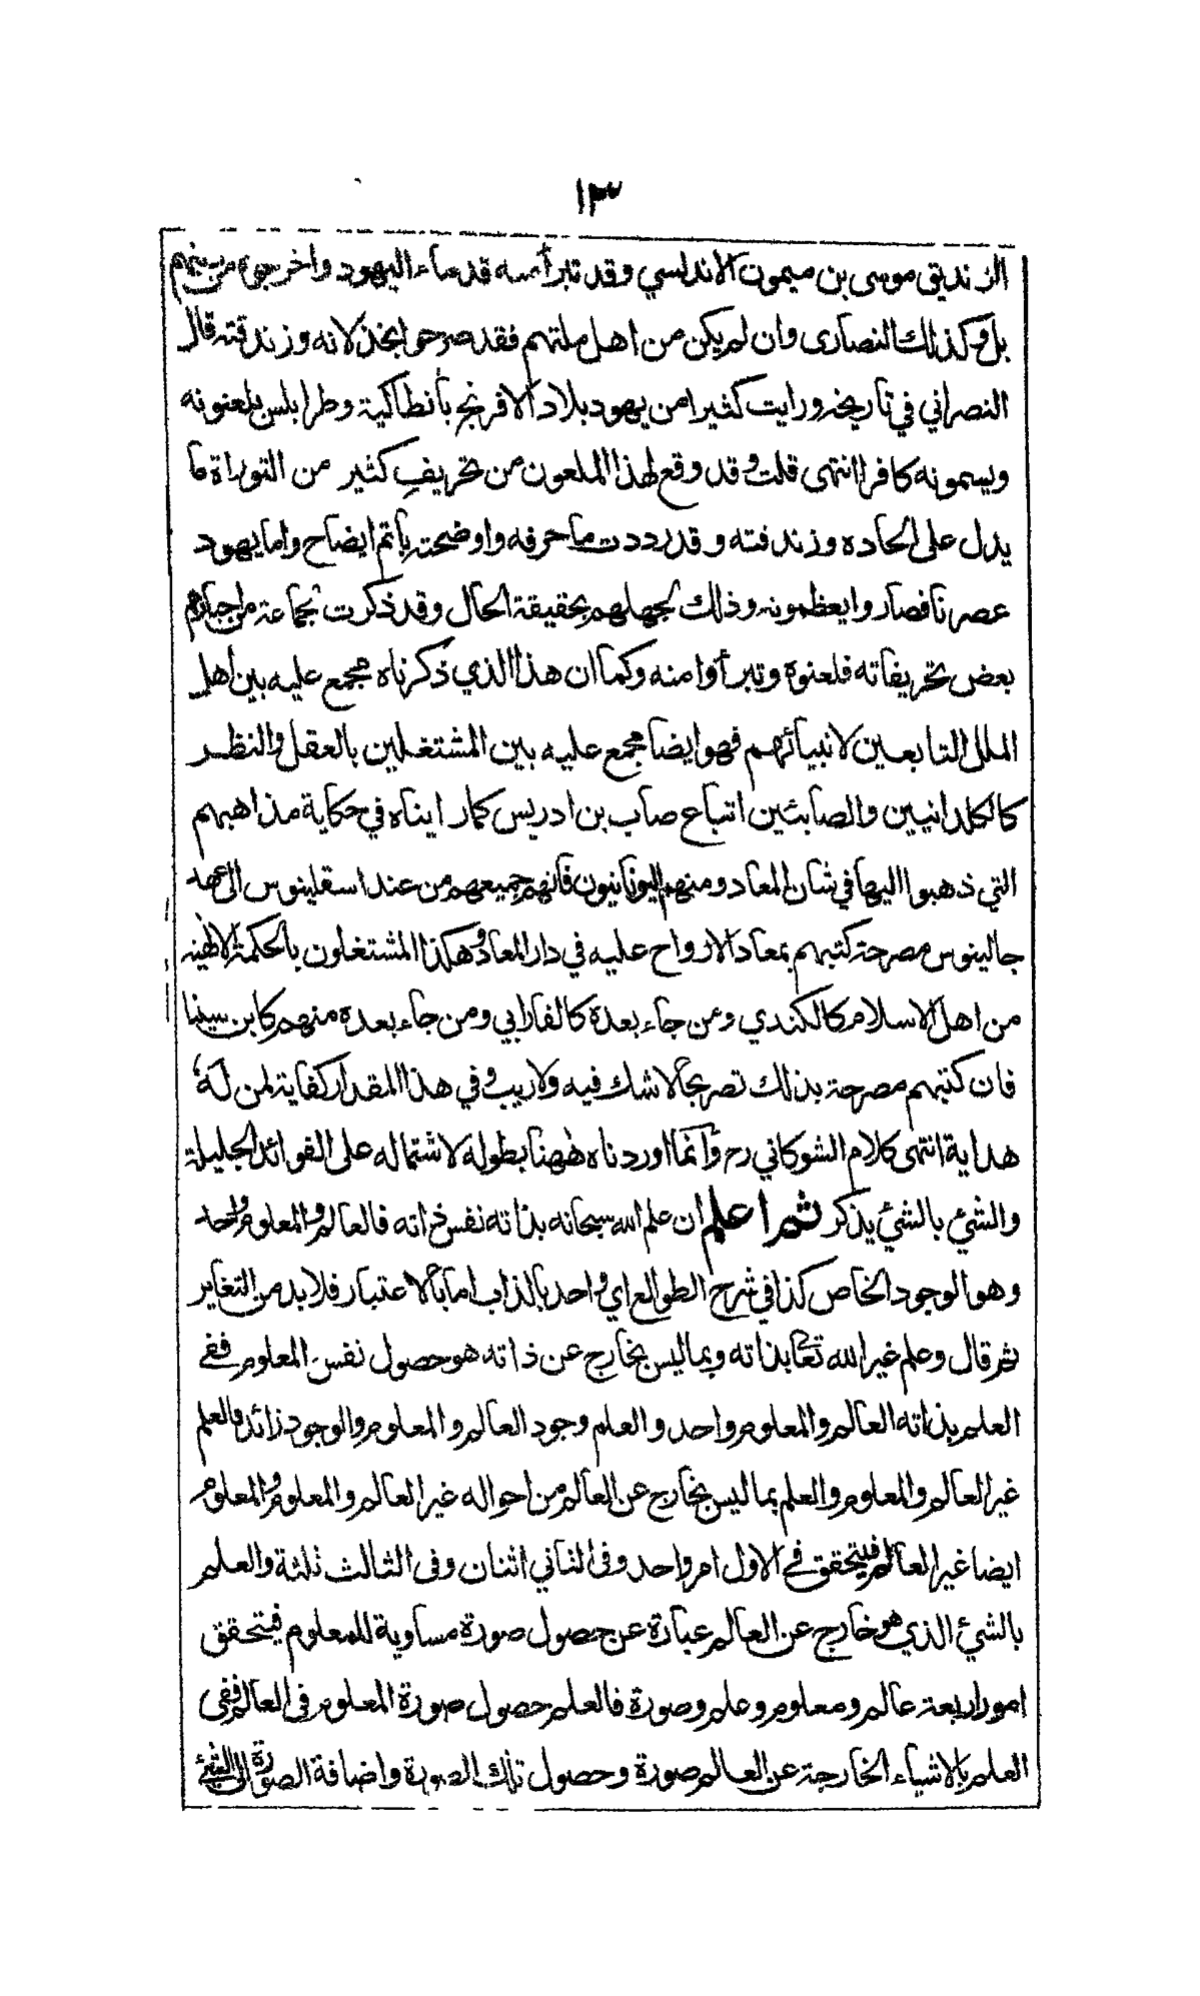 ١٣
الزنديق موسى بن ميمون الاندلسي وقد تبرأ منه قدماء اليهود واخرجوه من بينهم
بل وكذلك النصارى وان لم يكن من اهل ملتهم فقد صرحوا بخذلانه وزندقته قال
النصراني في تاريخه ورايت كثيرا من يهود بلاد الافرنج بأنطاكية وطرابلس يلعنونه
ويسمونه كافرا انتهى قلت وقد وقع لهذا الملعون من تحريف كثير من التوراة ما
يدل على الحاده وزندقته وقد رددت ما حرفه واوضحته بأتم ايضاح واما يهود
عصرنا فصاروا يعظمونه وذلك لجهلهم بحقيقة الحال وقد ذكرت لجماعة من احبارهم
بعض تحريفاته فلعنوه وتبرأوا منه وكما ان هذا الذي ذكرناه مجمع عليه بين أهل
الملل التابعين لانبيائهم فهو ايضا مجمع عليه بين المشتغلين بالعقل والنظر
كالكلدانيين والصابئين اتباع صاب بن ادريس كما رايناه في حكاية مذاهبهم
التي ذهبوا اليها في شان المعاد ومنهم اليونانيون فانهم جميعهم من عند اسقلينوس الى عهد
جالينوس مصرحة كتبهم بمعاد الارواح عليه في دار المعاد وهكذا المشتغلون بالحكمة الالهية
من اهل الاسلام كالكندي ومن جاء بعده كالفارابي ومن جاء بعده منهم كابن سينا
فان كتبهم مصرحة بذلك تصريحا لاشك فيه ولا ريب وفي هذا المقدار كفاية لمن له
هداية انتهى كلام الشوكاني رح وانما اوردناه ههنا بطوله لاشتماله على الفوائد الجليلة
والشيئ بالشيئ يذكر ثم اعلم ان علم الله سبحانه بذاته نفس ذاته فالعالم والمعلوم واحد
وهو الوجود الخاص كذا في شرح الطوالع اي واحد بالذات اما بالاعتبار فلا بد من التغاير
ثم قال وعلم غير الله تعالى بذاته وبما ليس بخارج عن ذاته هو حصول نفس المعلوم ففي
العلم بذاته العالم والمعلوم واحد والعلم وجود العالم والمعلوم والوجود زائد فالعلم
غير العالم والمعلوم والعلم بما ليس بخارج عن العالم من احواله غير العالم والمعلوم والمعلوم
ايضا غير العالم فيتحقق في الاول امر واحد وفى الثاني اثنان وفى الثالث ثلثة والعلم
بالشيئ الذي هو خارج عن العالم عبارة عن حصول صورة مساوية للمعلوم فيتحقق
امور اربعة عالم ومعلوم وعلم وصورة فالعلم حصول صورة المعلوم فى العالم ففى
العلم بالاشياء الخارجة عن العالم صورة وحصول تلك الصورة واضافة الصورة الى الشيئ